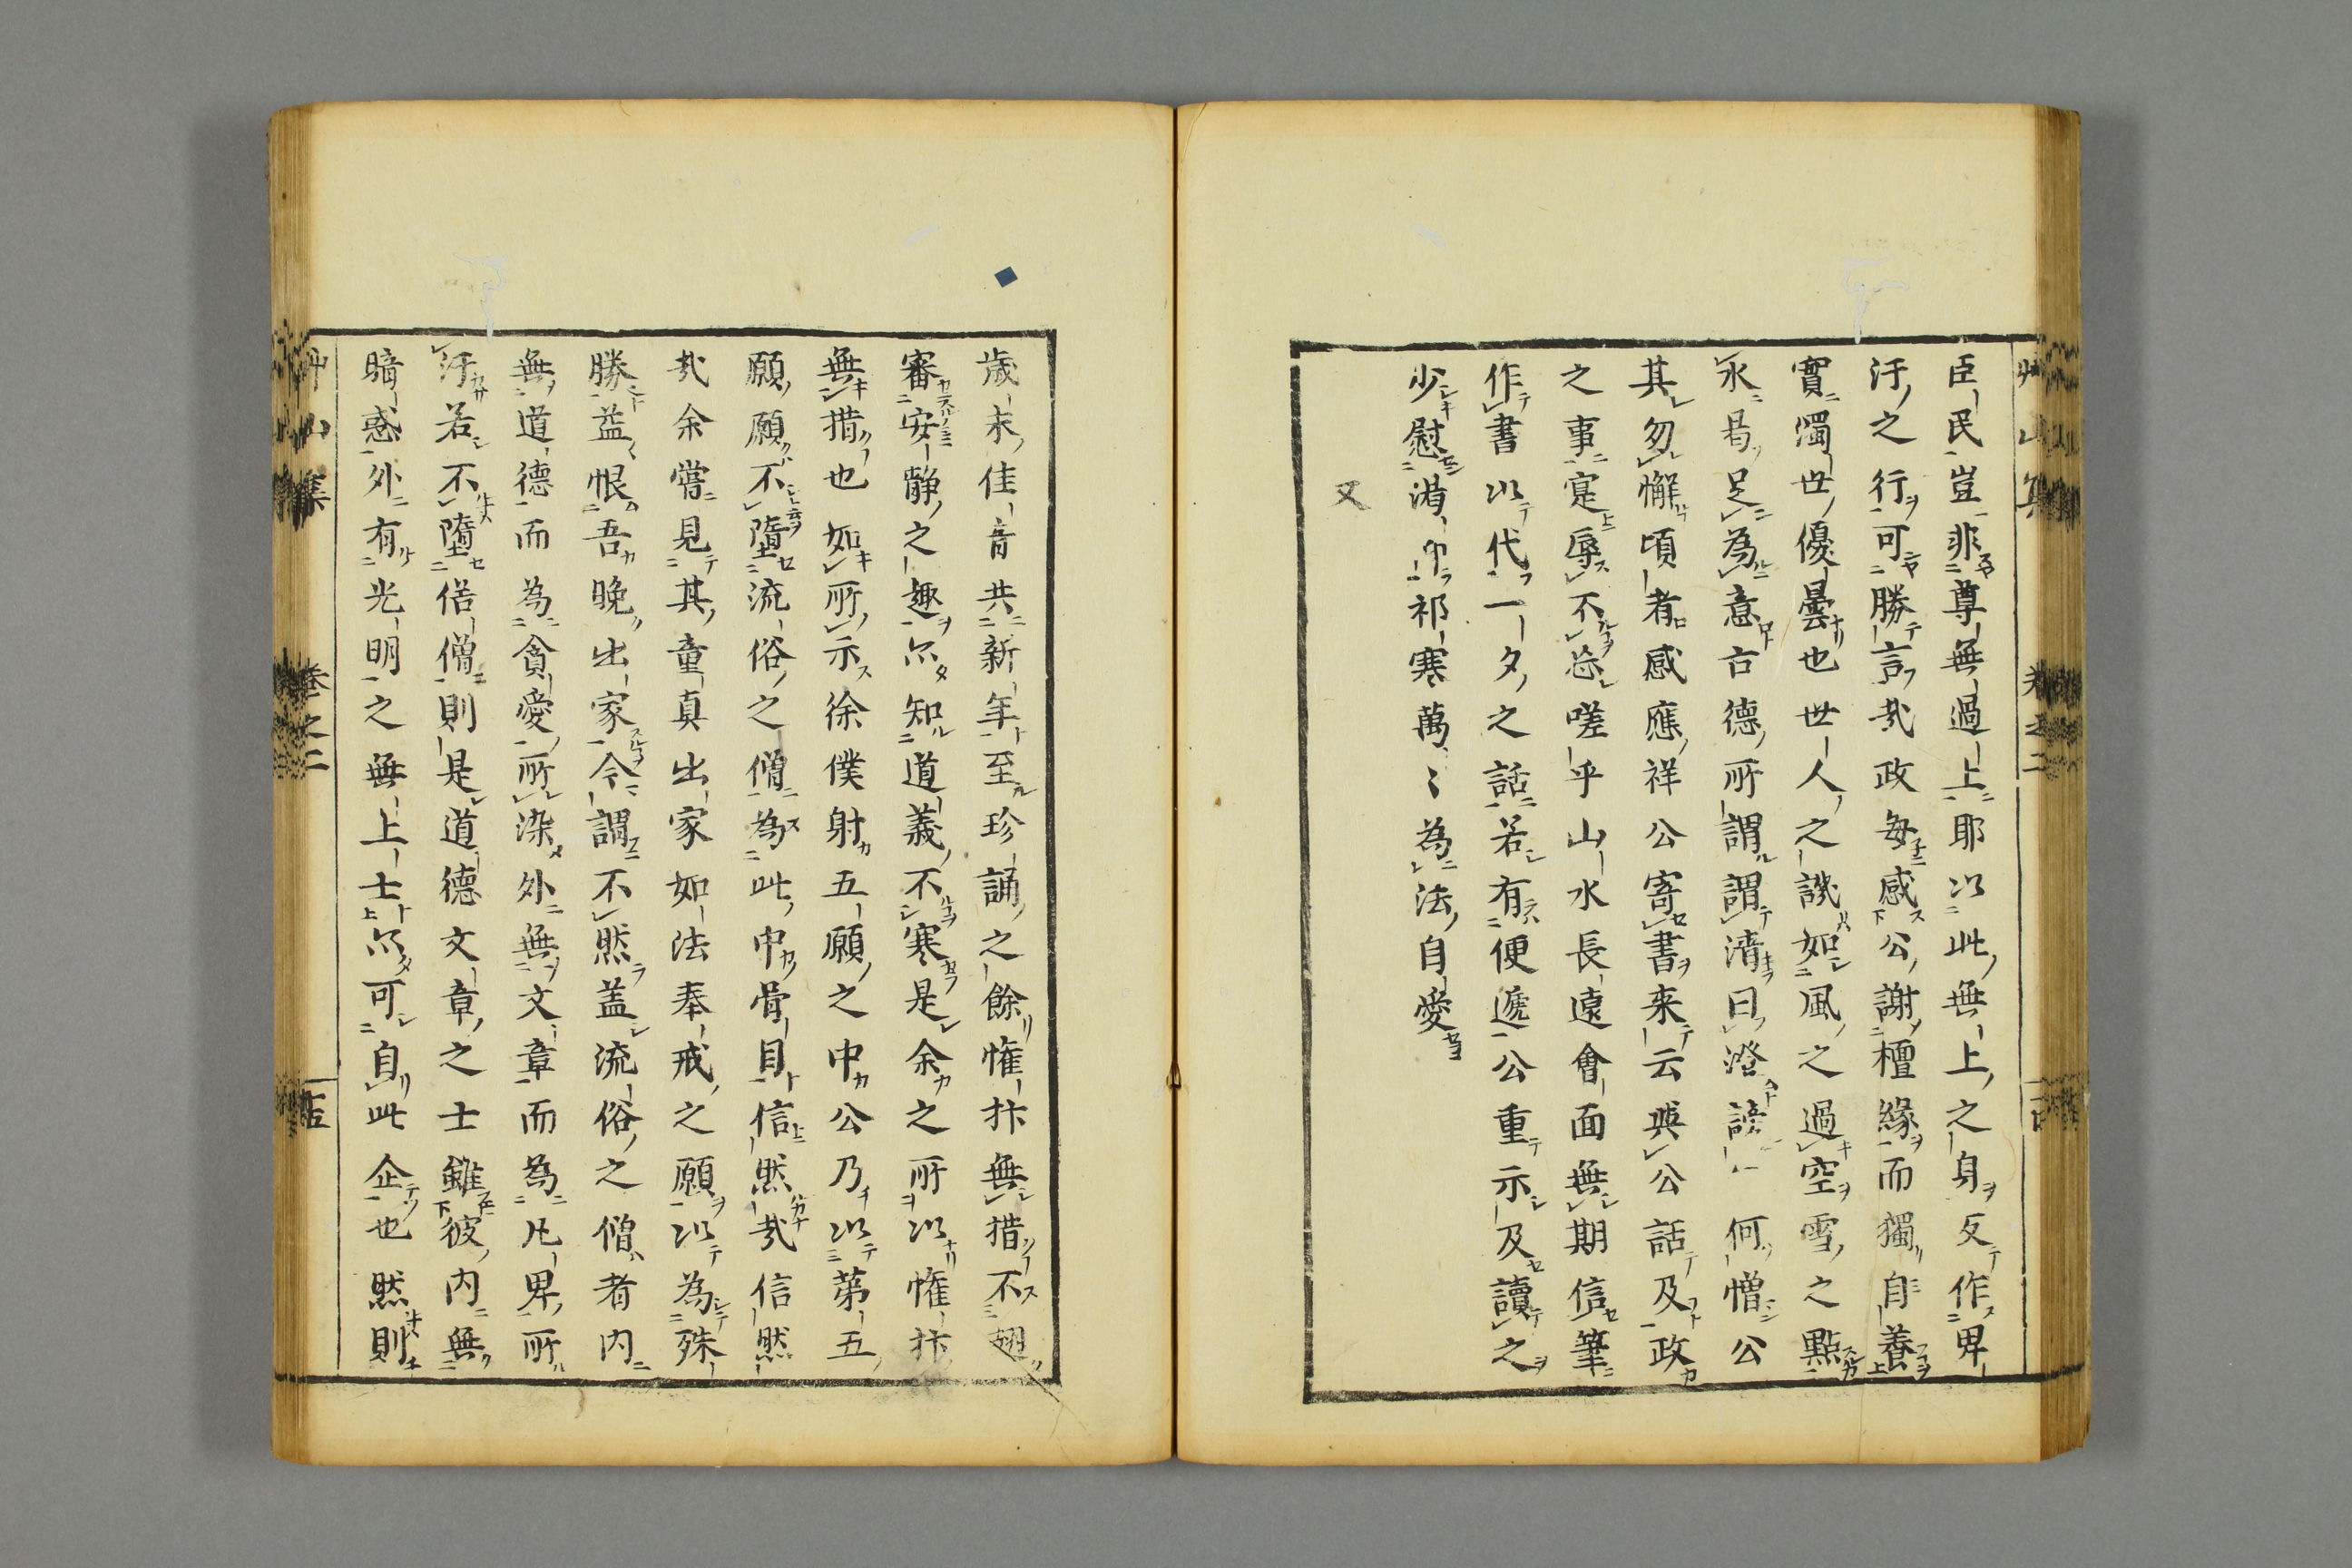 臣民豈非尊無過上耶以此無上之身反作卑
汙之行可勝言哉政每感公謝檀緣而獨自養
實濁世優曇也世人之譏如風之過空雪之點
永曷足為意古德所謂謂清曰澄謗 何憎公
其勿懈頃者感應祥公寄書来云與公話及政
之事寔辱不忘嗟乎山水長遠會面無期信筆
作書以代一夕之話若有便遞公重示及讀之
少慰渇 祁寒萬〻為法自愛
又
歳末佳音共新年至珍誦之餘惟抃無措不翅
審安静之趣亦知道義不寒是余之所以惟抃
無措也如所示徐僕射五願之中公乃以第五
願願不墮流俗之僧為此中骨目信然哉信然
哉余嘗見其童真出家如法奉戒之願以為殊
勝益恨吾晚出家今謂不然盖流俗之僧者内
無道德而為貪愛所染外無文章而為凡卑所
汙若不墮俗僧則是道德文章之士雖彼内無
暗惑外有光明之無上士亦可自此企也然則
艸山集 卷之二